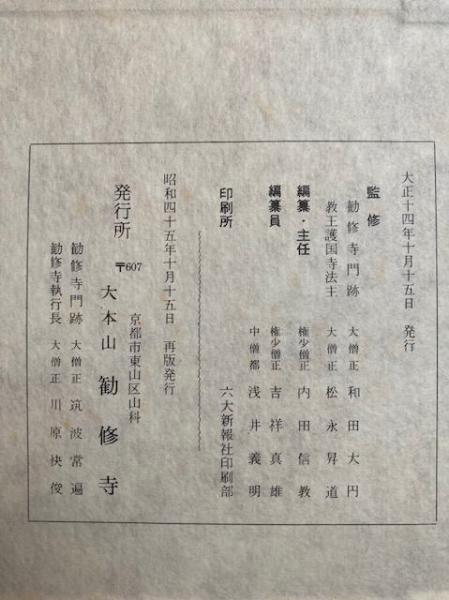 大正十四年十月十五日　発行
監修
勧修寺門跡　大僧正　和田大円
教王護国寺法主　大僧正　松永昇道
編纂・主任　権少僧正　内田信教
編纂員　権少僧正　吉祥真雄
中僧都　浅井義明
印刷所　六大新報社印刷部
昭和四十五年十月十五日　再版発行
京都市東山区山科
発行所　〒607　大本山　勧修寺
勧修寺門跡　大僧正　筑波常遍
勧修寺執行長　大僧正　川原快俊